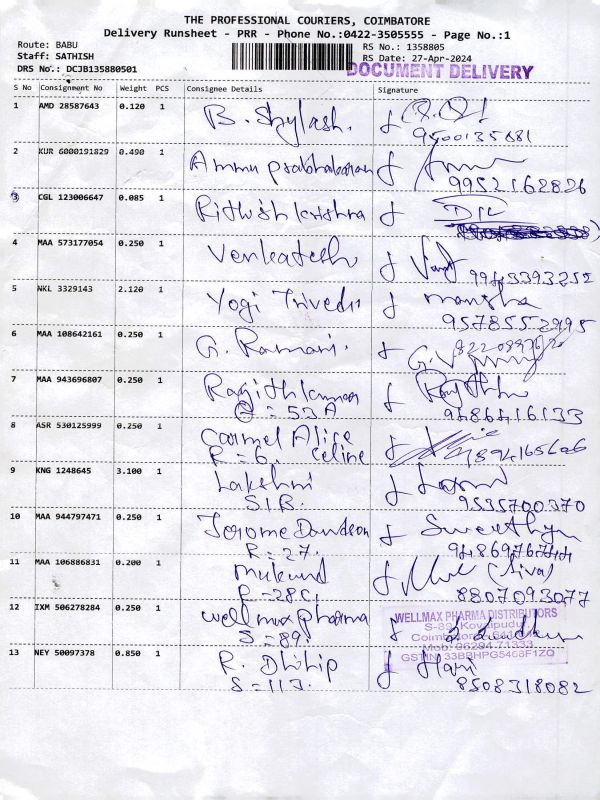 THE PROFESSIONAL COURIERS, COIMBATORE
Delivery Runsheet - PRR - Phone No.:0422-3505555 - Page No.:1
Route: BABU
RS No.: 1358805
Staff: SATHISH
RS Date: 27-Apr-2024
DRS No.: DCJB135880501
DOCUMENT DELIVERY
S No Consignment No Weight PCS Consignee Details Signature
1 AMD 28587643 0.120 1 B. Shylash.
9500135681
2 KUR 6000191829 0.490 1 Ammu prabhakaran
9952162826
3 CGL 123006647 0.085 1 Rithish krishna
4 MAA 573177054 0.250 1 Venkatesh
9943393252
5 NKL 3329143 2.120 1 Yogi Trivedi
9578552995
6 MAA 108642161 0.250 1 G. Ramani.
7 MAA 943696807 0.250 1 Ragithkumar
= 53A 9486416133
8 ASR 530125999 0.250 1 Carmel Alice
R = 6. Celine
9894165606
9 KNG 1248645 3.100 1 Lakshmi Laxmi
S.I.B. 9535700370
10 MAA 944797471 0.250 1 Jerome Davidson
R = 27.
11 MAA 106886831 0.200 1 mukund (Siva)
R = 28C, 8807093077
12 IXM 506278284 0.250 1 wellmax pharma
S = 89,
WELLMAX PHARMA DISTRIBUTORS
S-89, Kovaipudur
13 NEY 50097378 0.850 1 R. Dhilip Hari
S = 113. 8508318082